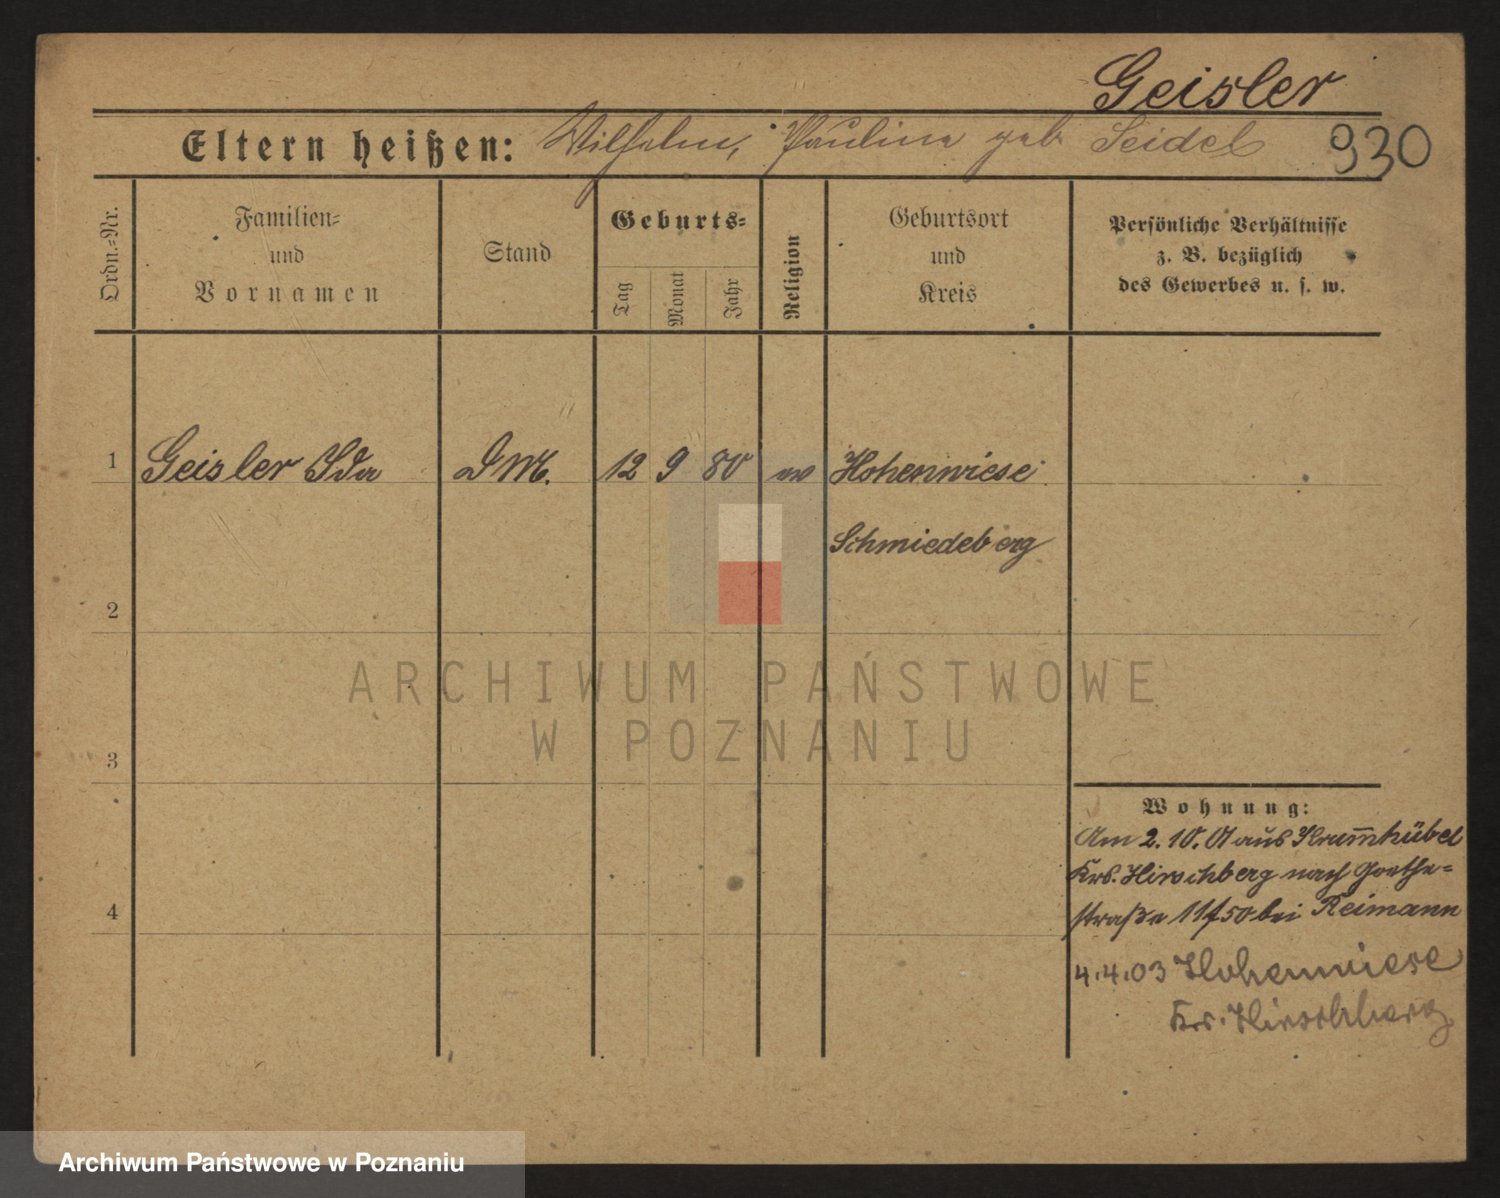 Geisler
Eltern heißen: Wilhelm, Pauline geb Seidel 930
Ordn.=Nr.
Familien=
und
Vornamen
Stand
Geburts=
Tag
Monat
Jahr
Religion
Geburtsort
und
Kreis
Persönliche Verhältnisse
z. B. bezüglich
des Gewerbes u. s. w.
1 Geisler Ida D M. 12 9 80 ev Hohenwiese
Schmiedeberg
2
ARCHIWUM PAŃSTWOWE
W POZNANIU
3
Wohnung:
Am 2. 10. 01 aus Krum̅hübel
Krs. Hirschberg nach Goethe=
straße 11 bei Reimann
4
4.4.03 Hohenwiese
Krs. Hirschberg
Archiwum Państwowe w Poznaniu